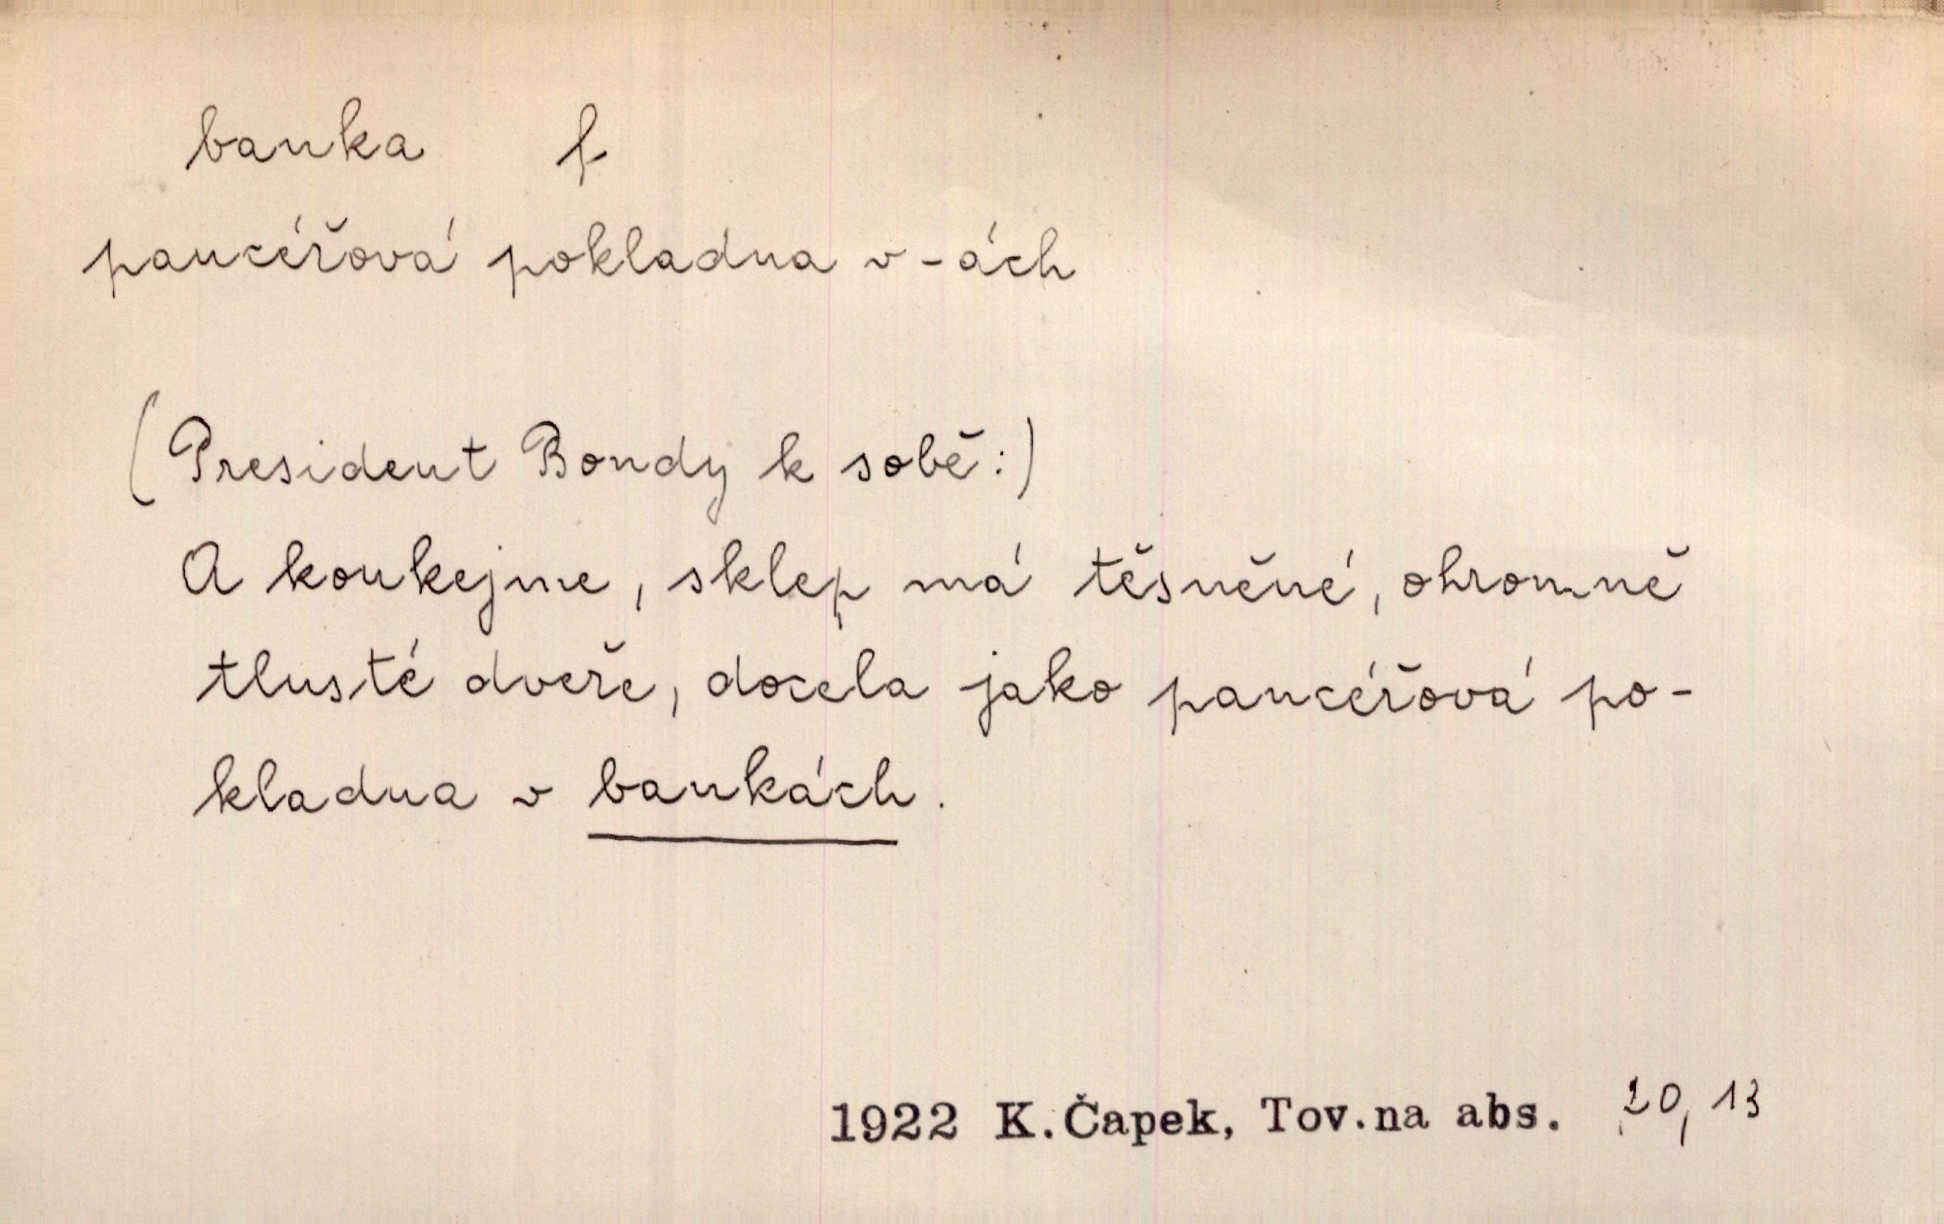 banka f
pancéřová pokladna v -ách
(President Bondy k sobě:)
A koukejme, sklep má těsněné, ohromně
tlusté dveře, docela jako pancéřová po-
kladna v bankách.
1922 K. Čapek, Tov. na abs. 20, 13